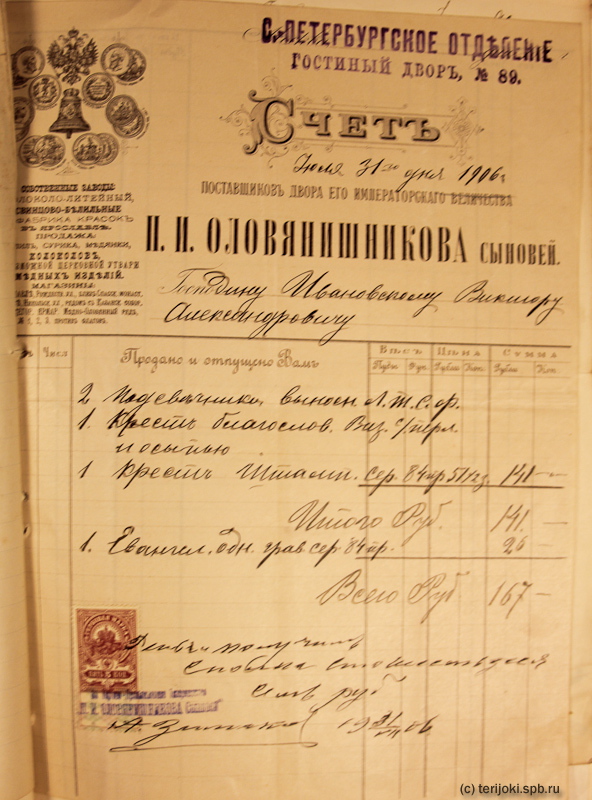 С.ПЕТЕРБУРГСКОЕ ОТДѢЛЕНІЕ
ГОСТИНЫЙ ДВОРЪ, № 89.
СЧЕТЪ
Іюля 31го дня 1906 г
ПОСТАВЩИКОВЪ ДВОРА ЕГО ИМПЕРАТОРСКАГО ВЕЛИЧЕСТВА
П. И. ОЛОВЯНИШНИКОВА СЫНОВЕЙ.
СОБСТВЕННЫЕ ЗАВОДЫ:
ОЛОКОЛО-ЛИТЕЙНЫЙ,
СВИНЦОВО-БѢЛИЛЬНЫЕ
ФАБРИКА КРАСОКЪ
ВЪ ЯРОСЛАВЛѢ.
ПРОДАЖА:
СУРИКА, МѢДЯНКИ,
КОЛОКОЛОВЪ,
ЦЕРКОВНОЙ УТВАРИ
МѢДНЫХЪ ИЗДѢЛІЙ.
МАГАЗИНЫ:
Господину Ивановскому Виктору
Александровичу
Числ.
Продано и отпущено Вамъ
ВѢСЪ ЦѢНА СУММА
Пуды Фун. Рубли Коп. Рубли Коп.
2 Подсвѣчника выносн. Л.Т.С.ф.
1. Крестъ благослов. Виз. с/перл.
и осыпью
1 Крестъ Штамп. сер. 84 пр 141 —
Итого Руб. 141. —
1. Евангел. Одн. грав сер 84 пр. 26 —
Всего Руб 167 —
Деньги получилъ
сполна сто шестьдеся
семь руб
ПЯТЬ КОП.
П. И. ОЛОВЯНИШНИКОВА СЫНОВЕЙ
19 31/VII 06
(c) terijoki.spb.ru